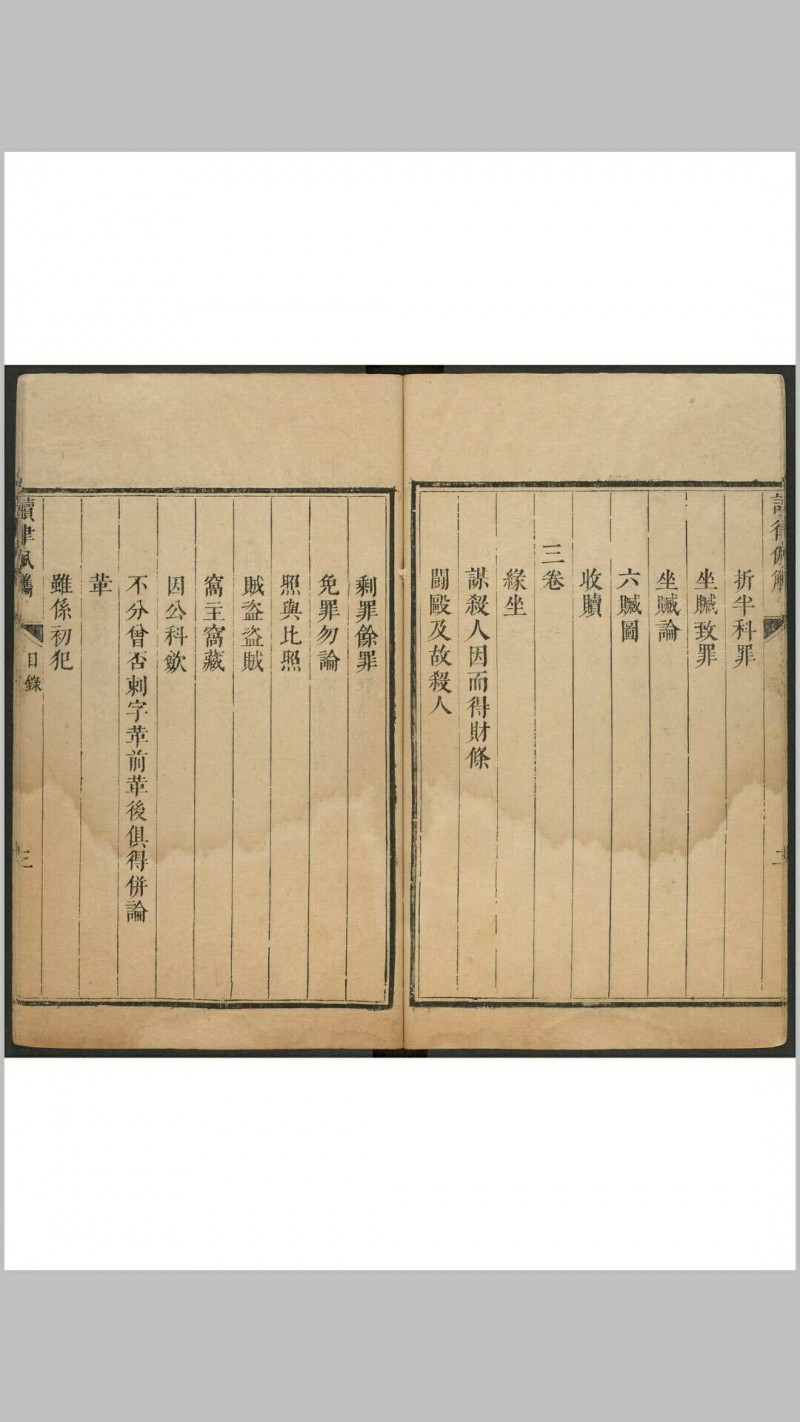 讀律佩觿
二
折半科罪
坐贓致罪
坐贓論
六贓圖
收贖
三卷
緣坐
謀殺人因而得財條
鬪毆及故殺人
剩罪餘罪
免罪勿論
照與比照
賊盜盜賊
窩主窩藏
因公科歛
不分曾否刺字革前革後俱得併論
革
雖係初犯
讀律佩觿
目錄
三